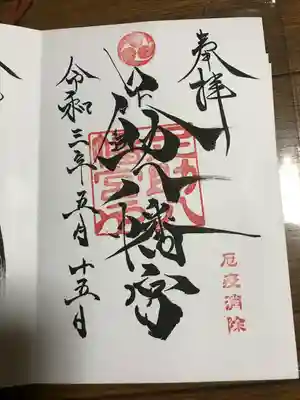 奉拝
足助八幡宮
令和三年五月十五日
厄疫消除